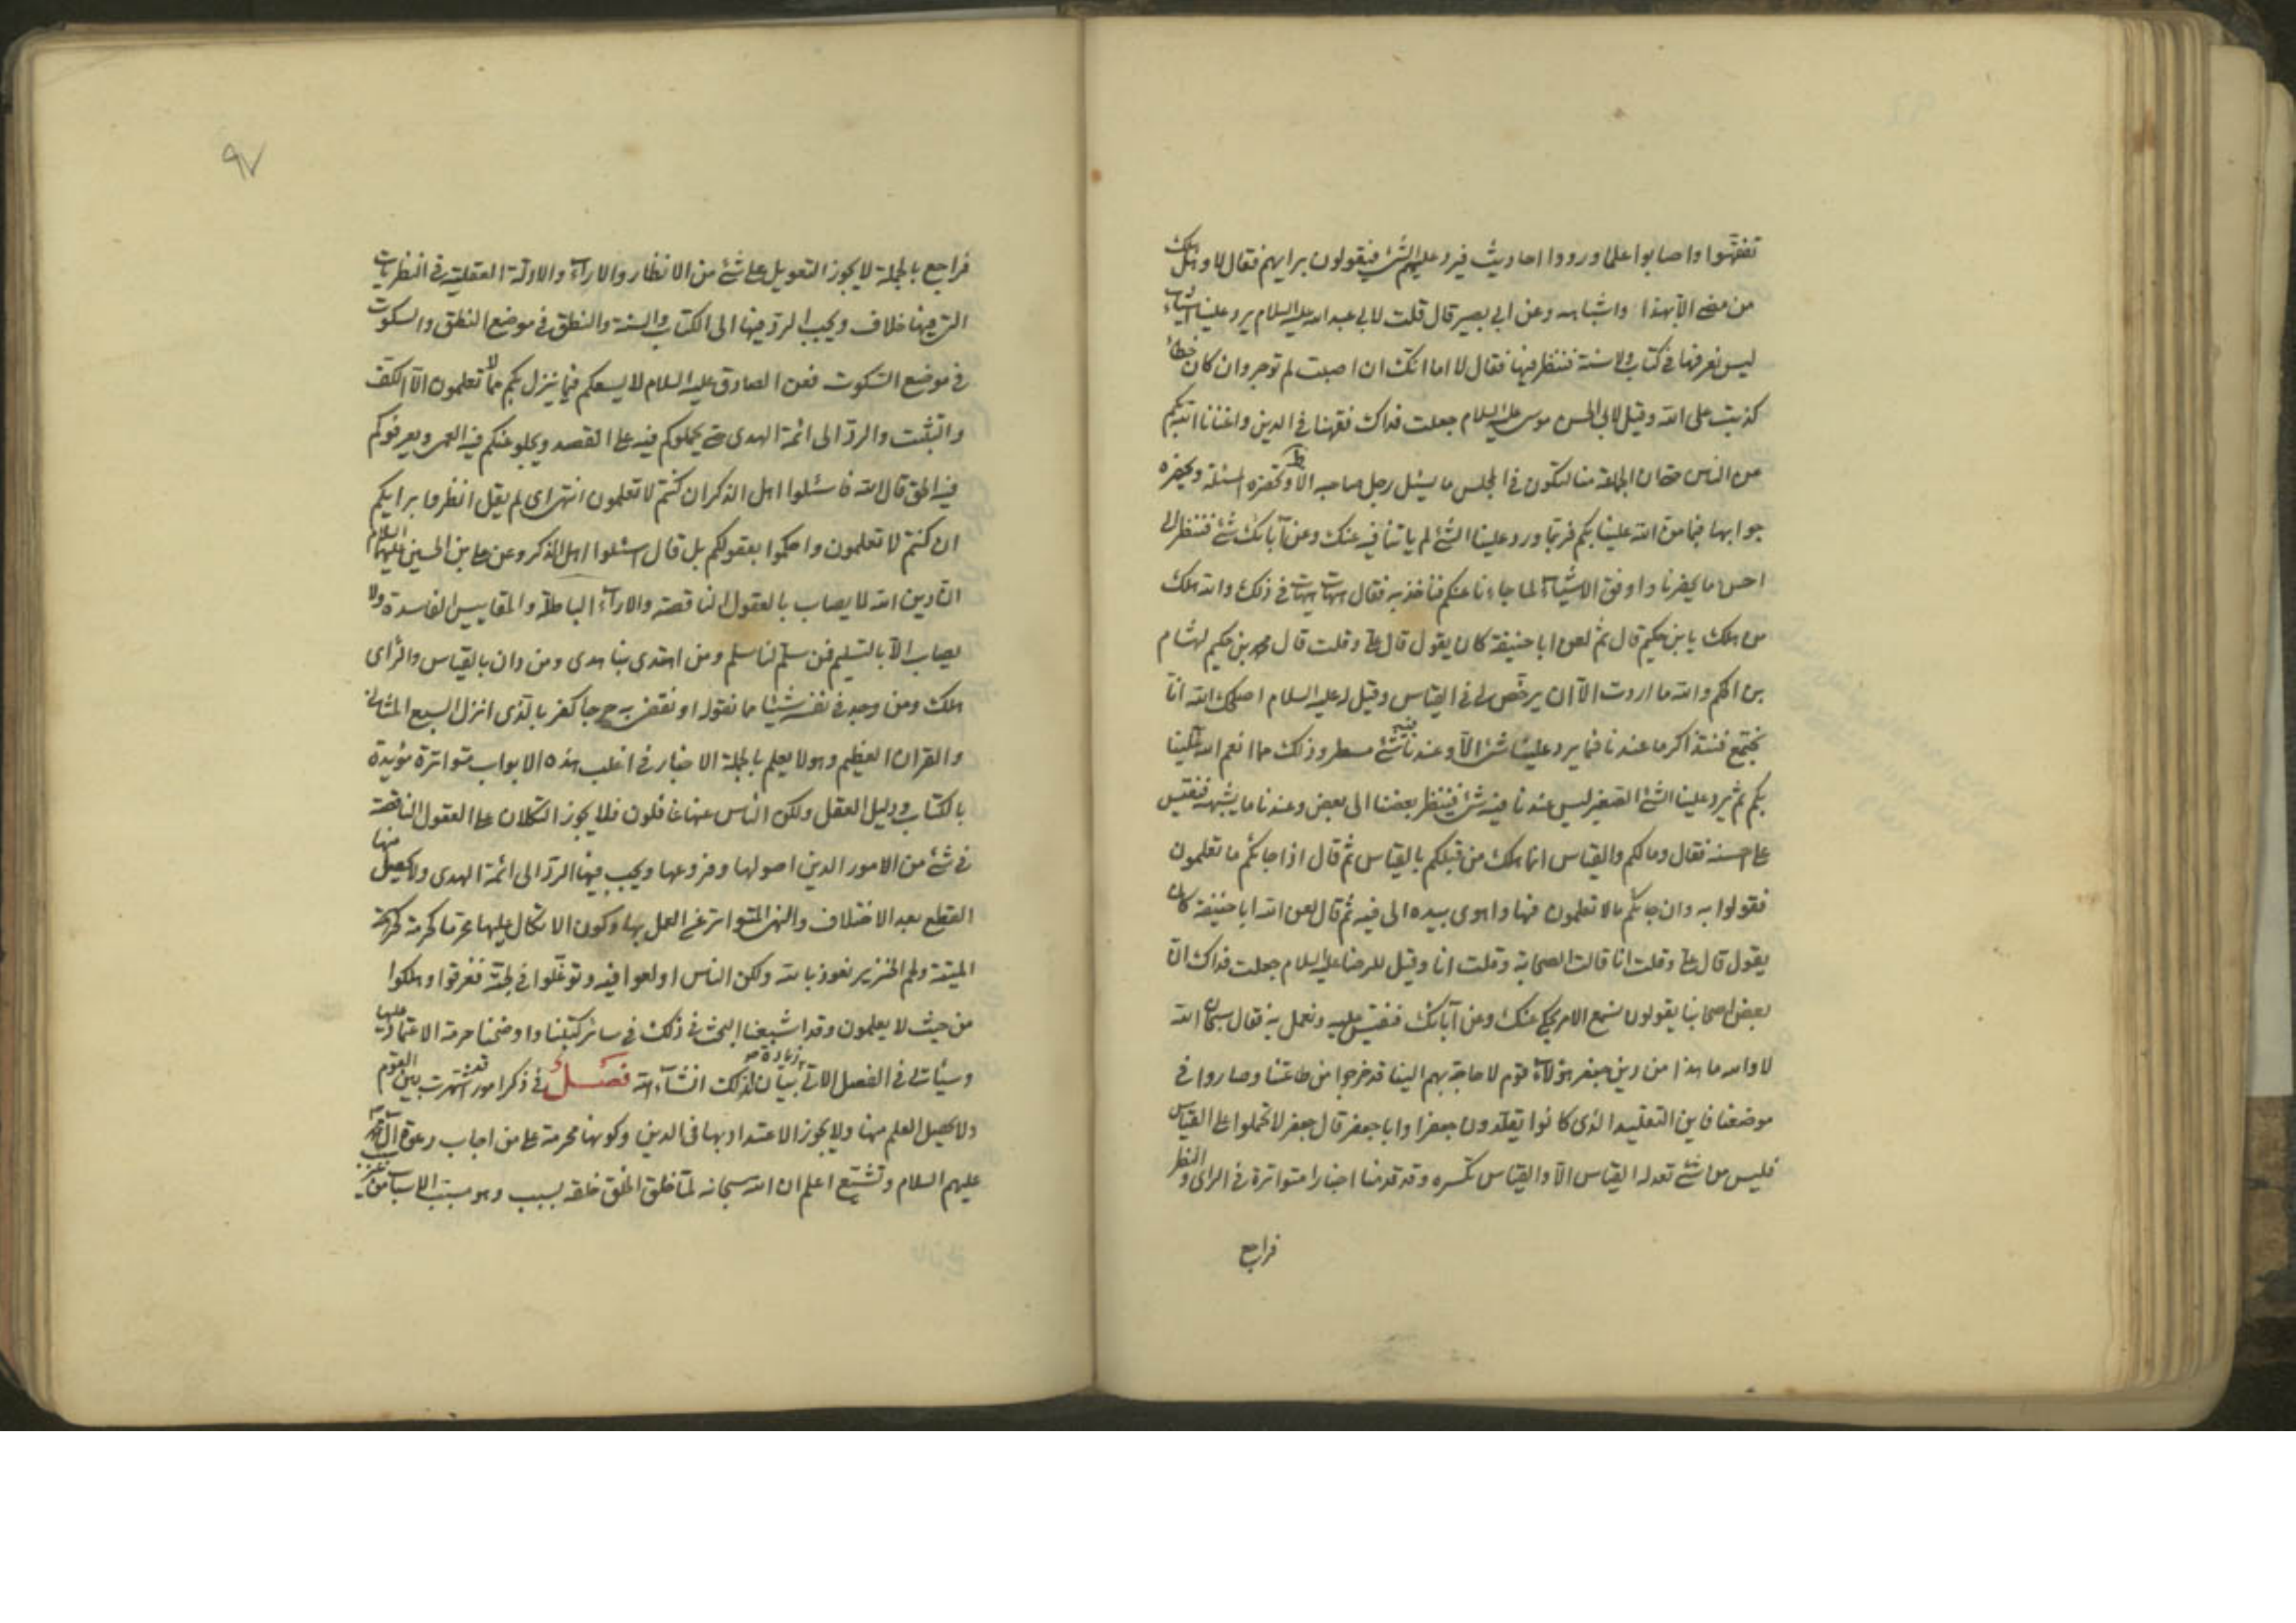 تفقهوا واصابوا علما ورووا احاديث فيرد عليهم الشئ فيقولون برايهم فقال لا وهل هلك
من مضى الا بهذا واشباهه وعن ابي بصير قال قلت لابي عبد الله عليه السلام يرد علينا اشياء
ليس نعرفها في كتاب ولا سنة فننظر فيها فقال لا اما انك ان اصبت لم توجر وان كان خطأ
كذبت على الله وقيل لابي الحسن موسى عليه السلام جعلت فداك فقهنا في الدين واغنانا الله بكم
من الناس حتى ان الجماعة منا لتكون في المجلس ما يسئل رجل صاحبه الا وتحضره المسئلة ويحضره
جوابها فيما من الله علينا بكم فربما ورد علينا الشئ لم ياتنا فيه عنك وعن آبائك شئ فننظر الى
احسن ما يحضرنا واوفق الاشياء لما جاءنا عنكم فنأخذ به فقال هيهات هيهات في ذلك والله هلك
من هلك يا بن حكيم قال ثم لعن ابا حنيفة كان يقول قال علي وقلت قال محمد بن حكيم لهشام
بن الحكم والله ما اردت الا ان يرخص لي في القياس وقيل له عليه السلام اصلحك الله انا
نجتمع فنتذاكر ما عندنا فما يرد علينا شئ الا وعندنا فيه شئ مسطر وذلك مما انعم الله علينا
بكم ثم يرد علينا الشئ الصغير ليس عندنا فيه شئ فينظر بعضنا الى بعض وعندنا ما يشبهه فنقيس
على احسنه فقال وما لكم والقياس انما هلك من قبلكم بالقياس ثم قال اذا جائكم ما تعلمون
فقولوا به وان جائكم ما لا تعلمون فها واهوى بيده الى فيه ثم قال لعن الله ابا حنيفة كان
يقول قال علي وقلت انا قالت الصحابة وقلت انا وقيل للرضا عليه السلام جعلت فداك ان
بعض اصحابنا يقولون نسمع الامر يحكى عنك وعن آبائك فنقيس عليه ونعمل به فقال سبحان الله
لا والله ما هذا من دين جعفر هؤلاء قوم لا حاجة بهم الينا قد خرجوا من طاعتنا وصاروا في
موضعنا فاين التقليد الذي كانوا يقلدون جعفرا وابا جعفر قال جعفر لا تحملوا على القياس
فليس من شئ تعدله القياس الا والقياس تكسره وقد قدمنا اخبارا متواترة في الراى والنظر
فراجع
٩٧
فراجع بالجملة لا يجوز التعويل على شئ من الانظار والاراء والادلة العقلية في النظريات
التي فيها خلاف ويجب الرد فيها الى الكتاب والسنة والنطق في موضع النطق والسكوت
في موضع السكوت فعن الصادق عليه السلام لا يسعكم فيما ينزل بكم مما لا تعلمون الا الكف
والتثبت والرد الى ائمة الهدى حتى يحملوكم فيه على القصد ويجلو عنكم فيه العمى ويعرفوكم
فيه الحق قال الله فاسئلوا اهل الذكر ان كنتم لا تعلمون انتهى اى لم يقل انظروا برايكم
ان كنتم لا تعلمون واحكموا بعقولكم بل قال اسئلوا اهل الذكر وعن علي بن الحسين عليهما السلام
ان دين الله لا يصاب بالعقول الناقصة والاراء الباطلة والمقاييس الفاسدة ولا
يصاب الا بالتسليم فمن سلم لنا سلم ومن اهتدى بنا هدى ومن دان بالقياس والرأى
هلك ومن وجد في نفسه شيئا مما نقوله او نقضى به حرجا كفر بالذى انزل السبع المثانى
والقران العظيم وهو لا يعلم بالجملة الاخبار في اغلب هذه الابواب متواترة مؤيدة
بالكتاب ودليل العقل ولكن الناس عنها غافلون فلا يجوز التكلان على العقول الناقصة
في شئ من الامور الدين اصولها وفروعها ويجب فيها الرد الى ائمة الهدى ولا يحصل منها
القطع بعد الاختلاف والنهى المتواتر عن العمل بها وكون الاتكال عليها محرما كحرمة
الميتة ولحم الخنزير نعوذ بالله ولكن الناس اولعوا فيه وتوغلوا في لجته فغرقوا وهلكوا
من حيث لا يعلمون وقد اشبعنا البحث في ذلك في سائر كتبنا واوضحنا حرمة الاعتماد عليها
وسيأتى في الفصل الاتى زيادة بيان لذلك انشاء الله فصل في ذكر امور اشتهرت بين القوم
ولا يحصل العلم منها ولا يجوز الاعتداد بها في الدين وكونها محرمة على من اجاب دعوة آل محمد
عليهم السلام وتشيع اعلم ان الله سبحانه لما خلق الخلق خلقه بسبب وهو مسبب الاسباب من غير سبب